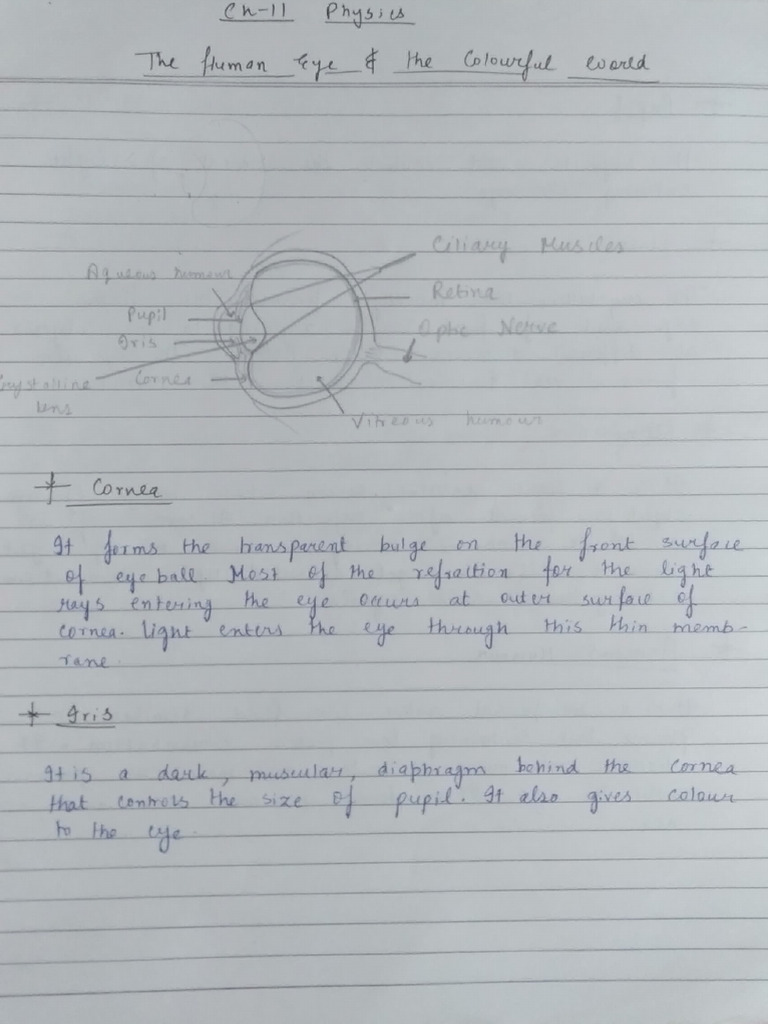 Ch-11 Physics
The Human Eye & the Colourful World
Ciliary Muscles
Aqueous humour
Retina
Pupil
Optic Nerve
Iris
Crystalline
lens
Cornea
Vitreous humour
Cornea
It forms the transparent bulge on the front surface
of eye ball. Most of the refraction for the light
rays entering the eye occurs at outer surface of
cornea. light enters the eye through this thin memb-
rane.
Iris
It is a dark, muscular, diaphragm behind the cornea
that controls the size of pupil. It also gives colour
to the eye.